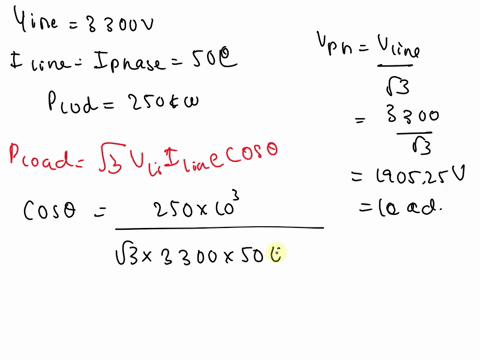 Vline = 3300V
I line = Iphase = 50
Plod = 250kw
Pload = √3 Vli Iline Cosθ
Cosθ = 250×10³
√3 × 3300 × 50
Vph = Vline
√3
= 3300
√3
= 1905,25V